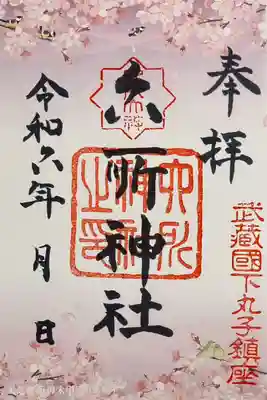 奉拝
武蔵國下丸子鎮座
六所神社
六所神社之印
令和六年 月 日